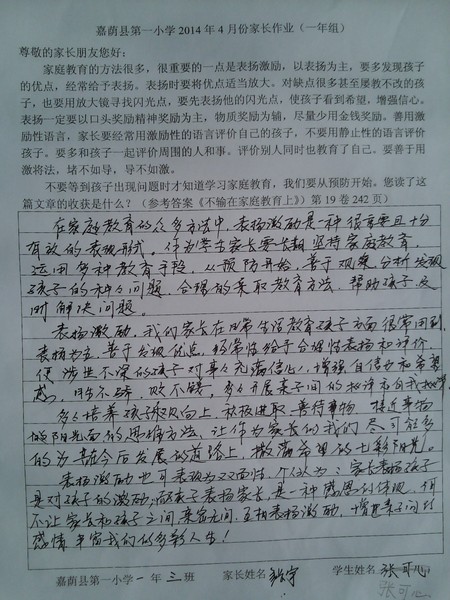 嘉荫县第一小学 2014 年 4 月份家长作业（一年组）
尊敬的家长朋友您好：
家庭教育的方法很多，很重要的一点是表扬激励，以表扬为主，要多发现孩子
的优点，经常给予表扬。表扬时要将优点适当放大。对缺点很多甚至屡教不改的孩
子，也要用放大镜寻找闪光点，要先表扬他的闪光点，使孩子看到希望，增强信心。
表扬一定要以口头奖励精神奖励为主，物质奖励为辅，尽量少用金钱奖励。善用激
励性语言，家长要经常用激励性的语言评价自己的孩子，不要用静止性的语言评价
孩子。要多和孩子一起评价周围的人和事。评价别人同时也教育了自己。要善于用
激将法，堵不如导，导不如激。
不要等到孩子出现问题时才知道学习家庭教育，我们要从预防开始。您读了这
篇文章的收获是什么？（参考答案《不输在家庭教育上》）第 19 卷 242 页）
在家庭教育的众多方法中，表扬激励是一种很重要且十分
有效的表现形式。作为学生家长要长期坚持家庭教育，
运用多种教育手段，从预防开始，善于观察、分析、发现
孩子的种种问题，合理的采取教育方法，帮助孩子及
时解决问题。
表扬激励，我们家长在日常生活教育孩子方面很常用到，
表扬为主，善于发现优点，经常性给予合理性表扬和评价，
使涉世不深的孩子对事物充满信心，增强自信力和希望
感，
多多开展亲子间的批评与自我批评，
多多培养孩子积极向上、积极进取、善待事物、接近事物
的阳光面的思维方法，让作为家长的我们尽可能多
的为孩子今后发展的道路上，撒满希望的七彩阳光。
表扬激励也可表现为双面性，个人认为：家长表扬孩子
是对孩子的激励；而孩子表扬家长，是一种感恩的体现，何
不让家长和孩子之间，亲密无间，互相表扬激励，增进亲子间的
感情，丰富我们的多彩人生！
嘉荫县第一小学 一 年 三 班 家长姓名 学生姓名 张可心
张可心